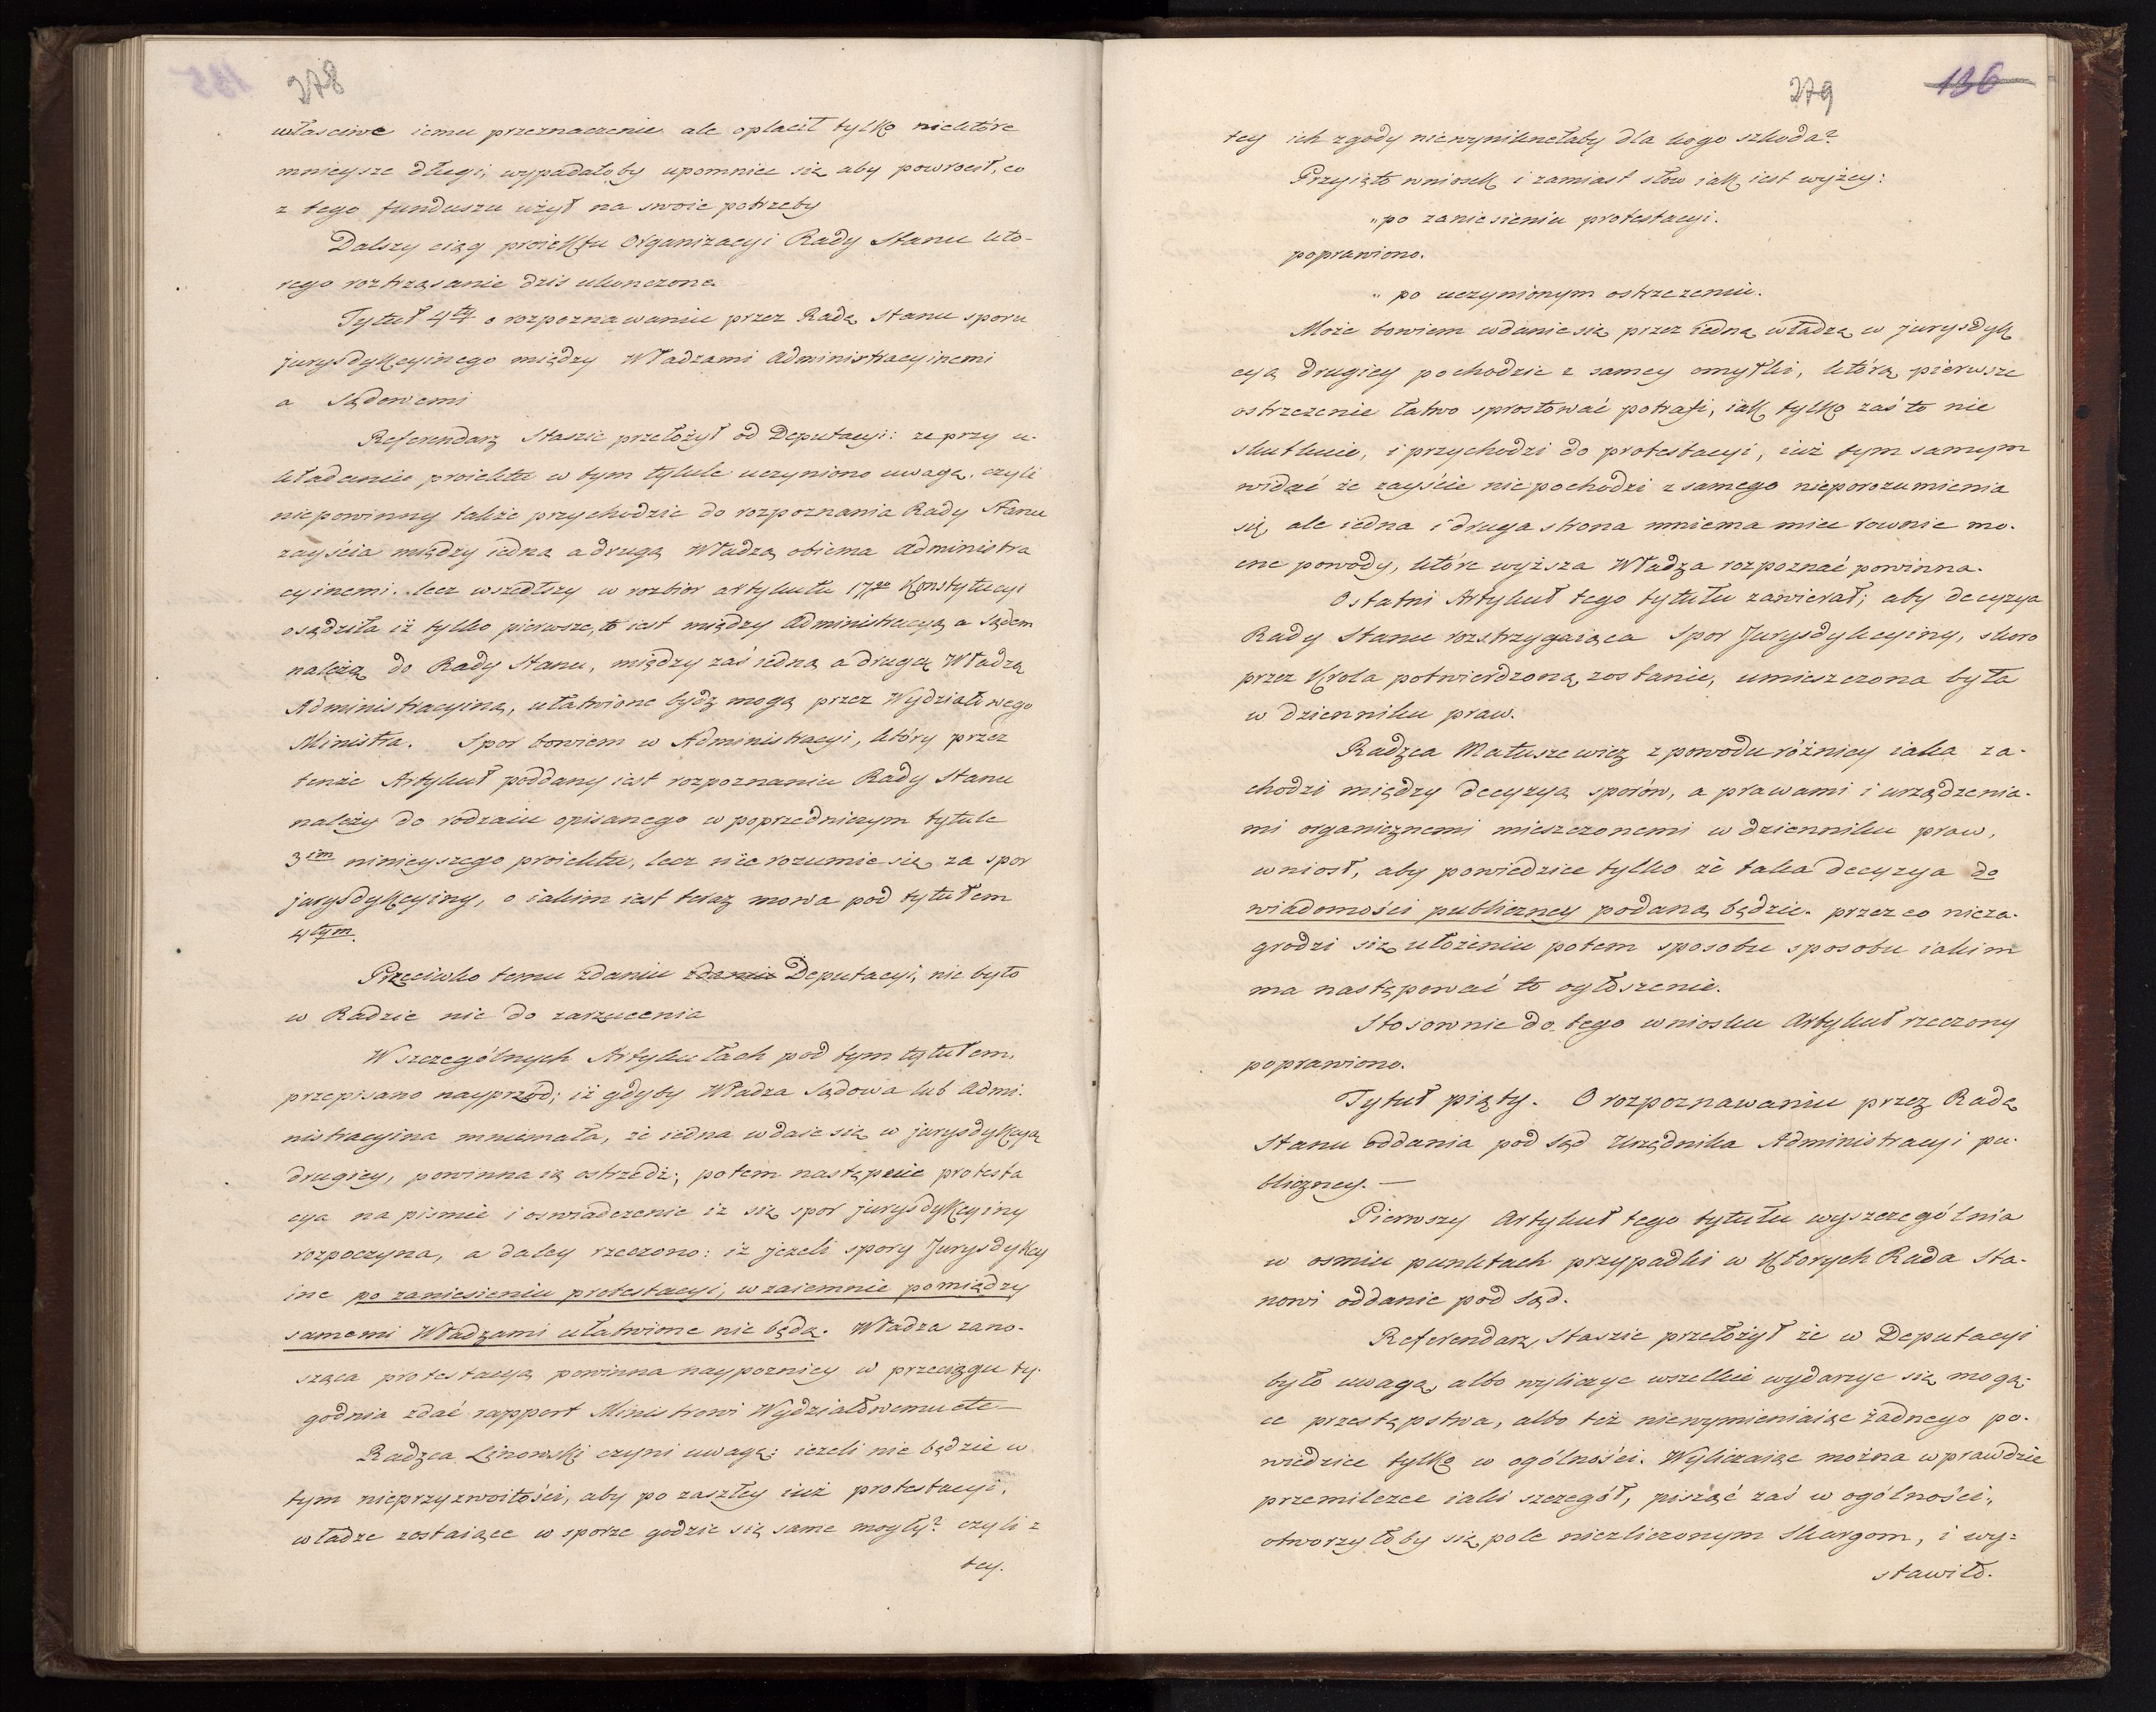 278
właściwe iemu przeznaczenie ale opłacił tylko niektóre
mnieysze długi, wypadałoby upomniec się aby powrócił, co
z tego funduszu użył na swoie potrzeby
Dalszy ciąg proiektu Organizacyi Rady Stanu któ-
rego roztrząsanie dziś ukonczone
Tytuł 4ty o rozpoznawaniu przez Radę Stanu sporu
jurysdykcyinego między Władzami Administracyinemi
a Sądowemi
Referendarz Staszic przełożył od Deputacyi: że przy u-
kładaniu proiektu w tym tytule uczyniono uwagę, czyli
niepowinny także przychodzic do rozpoznania Rady Stanu
zayścia między iedną a drugą Władzą obiema Administra
cyinemi. lecz wszedłszy w rozbior artykułu 17go Konstytucyi
osądziła iż tylko pierwsze, to iest między Administracyą a Sądem
należą do Rady Stanu, między zaś iedną a drugą Władzą
Administracyiną, ułatwione bydź mogą przez Wydziałowego
Ministra. Spor bowiem w Administracyi, który przez
tenże Artykuł poddany iest rozpoznaniu Rady Stanu
należy do rodzaiu opisanego w poprzedniczym tytule
3im ninieyszego proiektu, lecz nie rozumie się za spor
jurysdykcyiny, o iakim iest teraz mowa pod tytułem
4tym.
Przeciwko temu zdaniu zdaniu Deputacyi, nie było
w Radzie nic do zarzucenia
W szczególnych Artykułach pod tym tytułem,
przepisano nayprzód; iż gdyby Władza Sądowa lub Admi-
nistracyina mniemała, że iedna wdaie się w jurysdykcyą
drugiey, powinna ią ostrzedz; potem następuie protesta
cya na pismie i oswiadczenie iż się spor jurysdykcyiny
rozpoczyna, a daley rzeczono: iż jeżeli spory Jurysdykcy
ine po zaniesieniu protestacyi, wzaiemnie pomiędzy
samemi Władzami ułatwione nie będą. Władza zano-
sząca protestacyą powinna naypozniey w przeciągu ty-
godnia zdać rapport Ministrowi Wydziałowemu etc—
Radzca Linowski czyni uwagę: ieżeli nie będzie w
tym nieprzyzwoitości, aby po zaszłey iuż protestacyi,
władze zostaiące w sporze godzic się same mogły? czyli z
tey.
279
136
tey ich zgody niewyniknełaby dla kogo szkoda?
Przyięto wniosek i zamiast słów iak iest wyżey:
"po zaniesieniu protestacyi.
poprawiono.
" po uczynionym ostrzeżeniu.
Może bowiem wdanie się przez iedną władzę w jurysdyk
cyą drugiey pochodzic z samey omyłki, którą pierwsze
ostrzeżenie łatwo sprostować potrafi, iak tylko zaś to nie
skutkuie, i przychodzi do protestacyi, iuż tym samym
widać że zayście niepochodzi z samego nieporozumienia
się, ale iedna i druga strona mniema miec rownie mo-
cne powody, które wyższa Władza rozpoznać powinna.
Ostatni Artykuł tego tytułu zawierał; aby decyzya
Rady Stanu rozstrzygaiąca Spor Jurysdykcyiny, skoro
przez Krola potwierdzoną zostanie, umieszczona była
w dzienniku praw.
Radzca Matuszewicz z powodu różnicy iaka za-
chodzi między decyzyą sporów, a prawami i urządzenia-
mi organicznemi mieszczonemi w dzienniku praw,
wniosł, aby powiedzieć tylko że taka decyzya do
wiadomości publiczney podaną będzie. przez co nieza-
grodzi się ułożeniu potem sposobu sposobu iakim
ma następować to ogłoszenie.
Stosownie do tego wniosku Artykuł rzeczony
poprawiono.
Tytuł piąty. O rozpoznawaniu przez Radę
Stanu oddania pod Sąd Urzędnika Administracyi pu-
bliczney.—
Pierwszy Artykuł tego tytułu wyszczególnia
w osmiu punktach przypadki w Których Rada Sta-
nowi oddanie pod Sąd.
Referendarz Staszic przełożył że w Deputacyi
było uwagą, albo wyliczyc wszelkie wydarzyc się mogą-
ce przestępstwa, albo też niewymieniaiąc żadnego po-
wiedziec tylko w ogólności. Wyliczaiąc można wprawdzie
przemilczec iaki szczegół, pisząć zaś w ogólności,
otworzyłoby się pole niezliczonym Skargom, i wy=
stawiło.